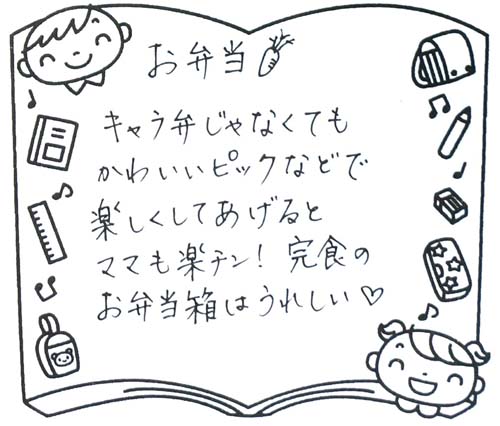 お弁当
キャラ弁じゃなくても
かわいいピックなどで
楽しくしてあげると
ママも楽チン! 完食の
お弁当箱はうれしい♡